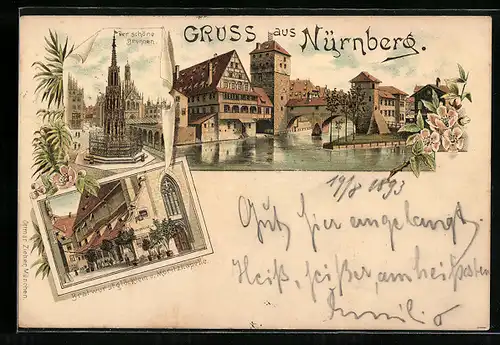 GRUSS aus Nürnberg.
Der schöne
Brunnen.
Bratwurstglöcklein u. Moritzkapelle.
19/8 1893
Gut hier angelangt.
Heiß, heißer, am heißesten
Ottmar Zieher, München.